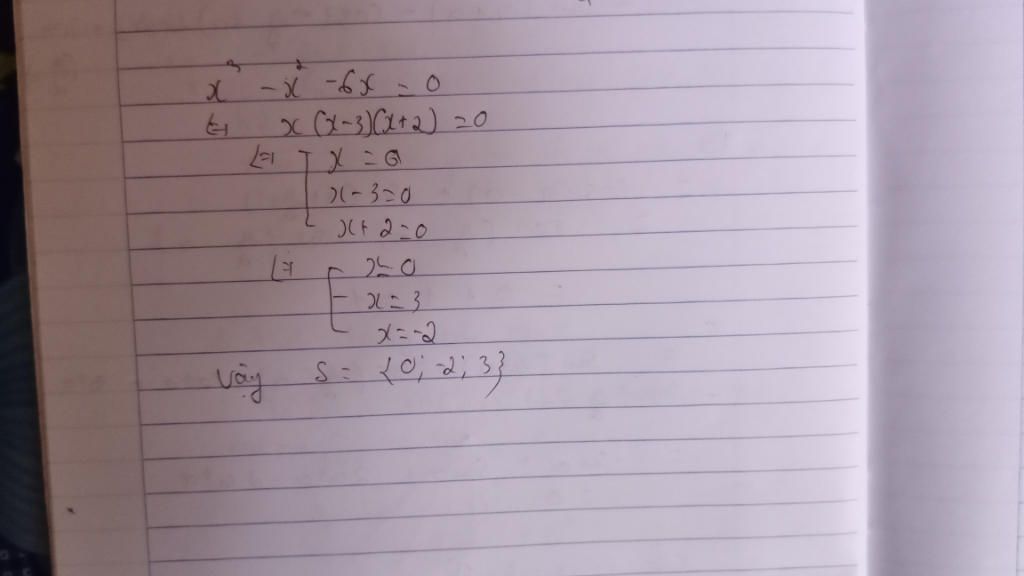 x³ - x² - 6x = 0
⇔ x (x-3)(x+2) = 0
⇔ [ x = 0
x - 3 = 0
x + 2 = 0
⇔ [ x = 0
x = 3
x = -2
Vậy S = {0; -2; 3}